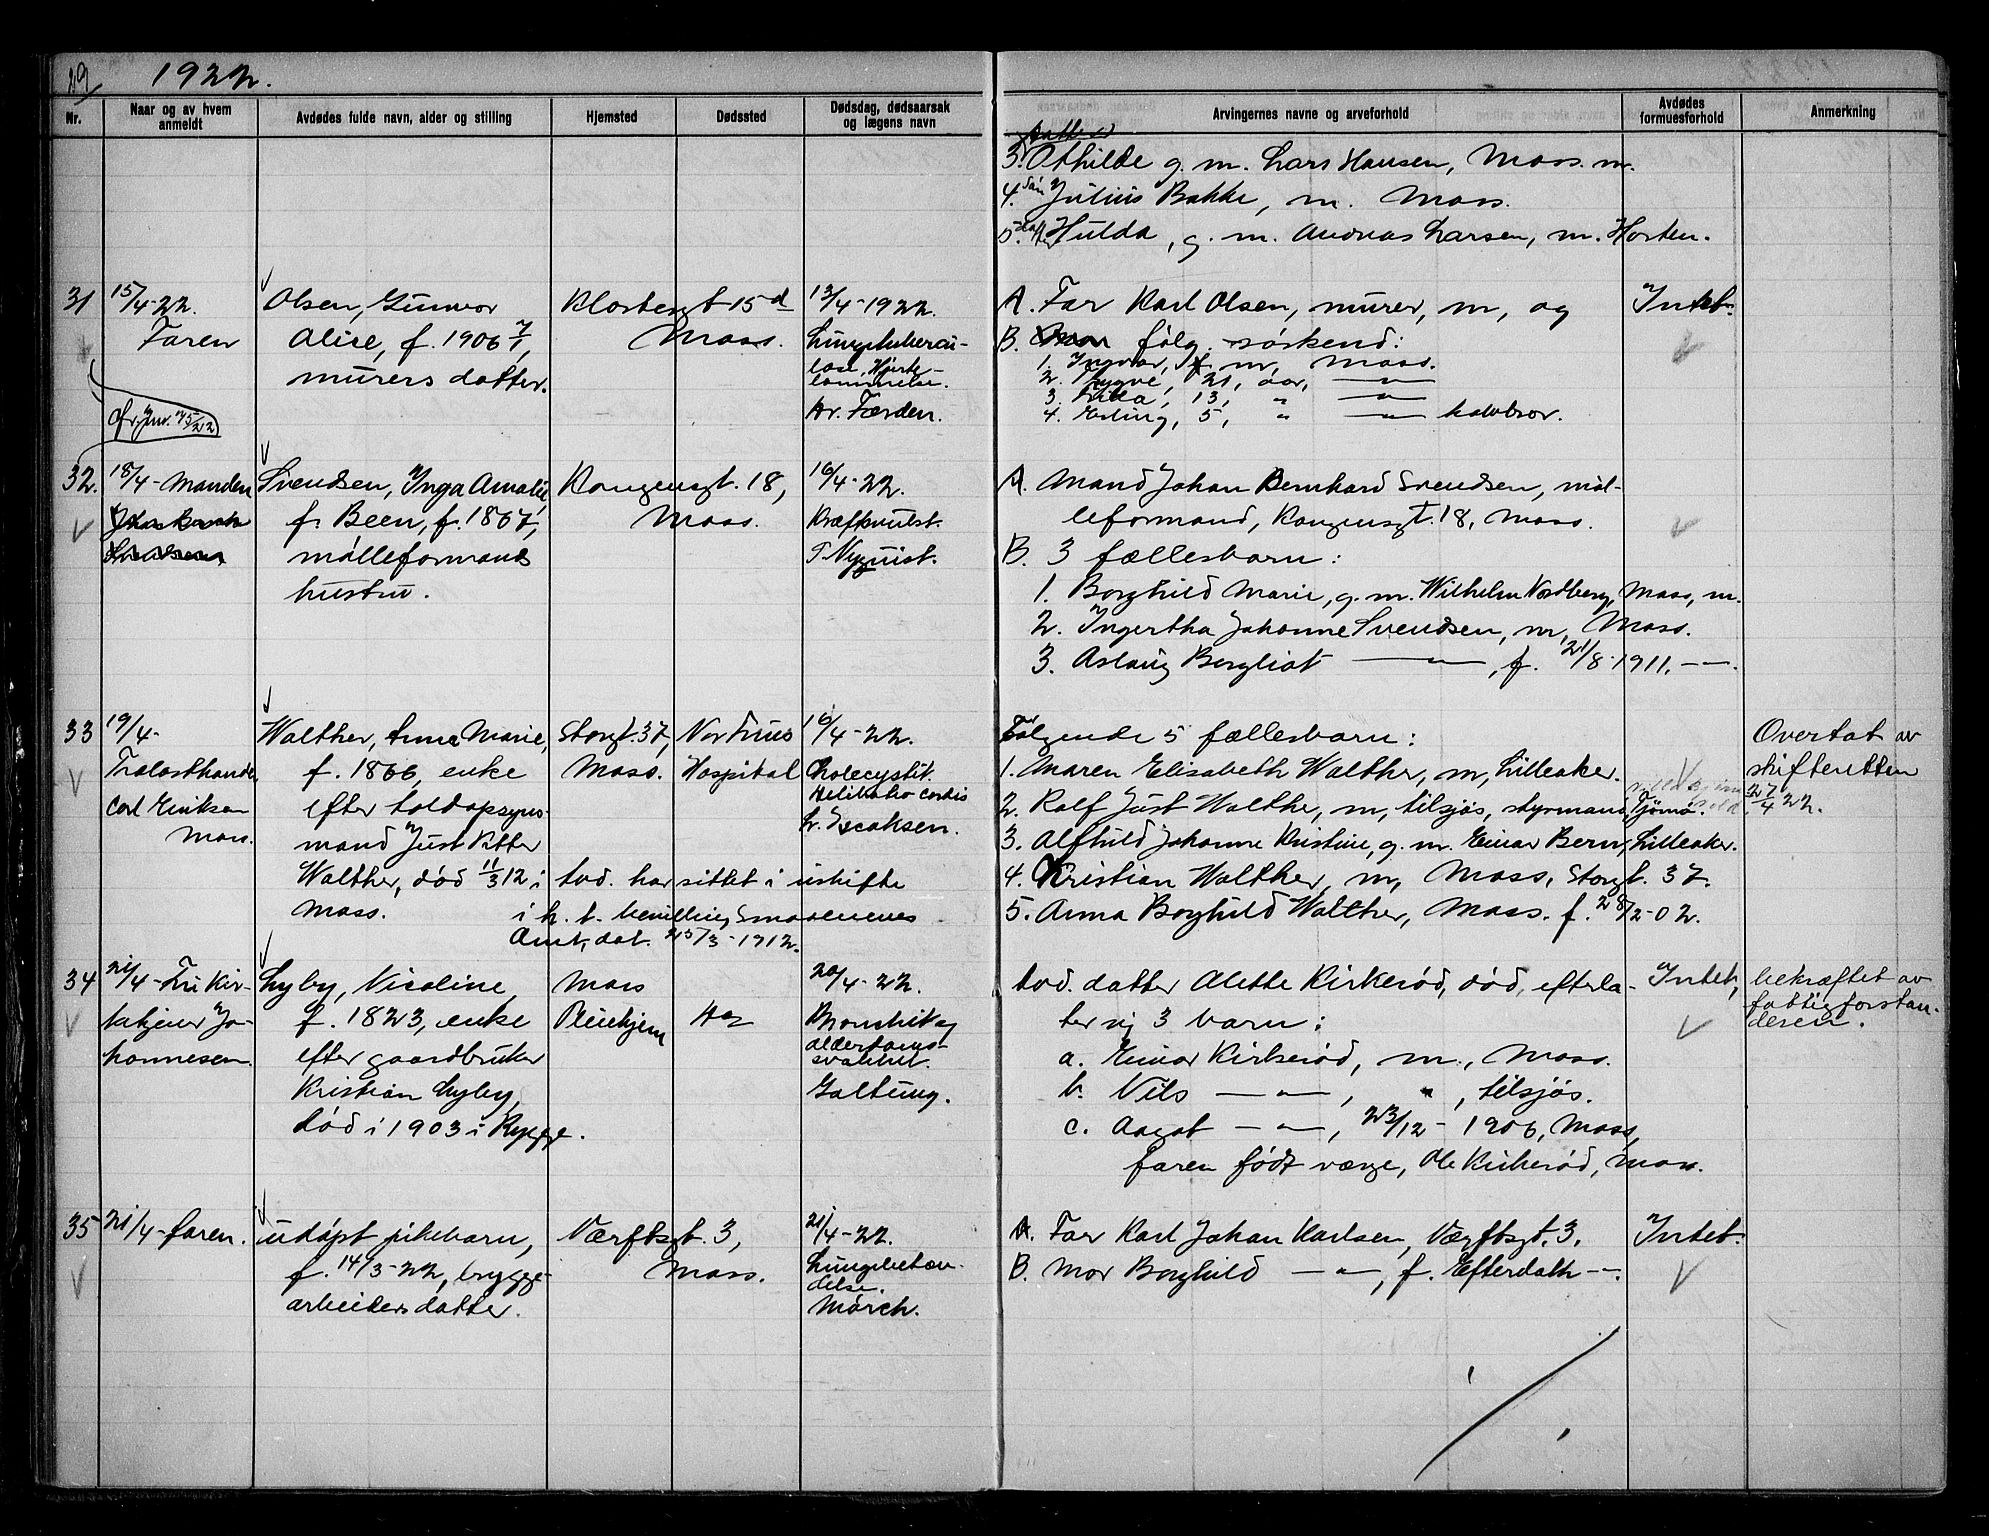 19 1922.
Nr.
Naar og av hvem anmeldt
Avdødes fulde navn, alder og stilling
Hjemsted
Dødssted
Dødsdag, dødsaarsak og lægens navn
Arvingernes navne og arveforhold
Avdødes formuesforhold
Anmerkning
datter
3. Othilde g. m. Lars Hansen, Moss. m.
4. søn Julius Bakke, m. Moss.
5. datter Hulda, g. m. Andreas Larsen, m. Horten.
31
15/4-22.
Faren
Olsen, Gunvor
Alice, f. 1906 7/1,
murers datter.
Klostergt 15d
Moss.
13/4-1922.
Lungetuberku-
lose, Hjerte-
lammelse.
Dr. Færden.
A. Far Karl Olsen, murer, m, og
B. følg. søskend:
1. Ingvar, m, Moss.
2. Trygve, 21, aar, — " —
3. 13, " — " —
4. Erling, 5, " — " — halvbror.
Intet.
cfr. Jnr. 75/22
32.
18/4- Manden
Svendsen, Inga Amalie
f. Been, f. 1867,
mølleformands
hustru.
Kongensgt. 18,
Moss.
16/4-22.
Kræftsvulst.
T. Nyquist.
A. Mand Johan Bernhard Svendsen, møl-
leformand, Kongensgt. 18, Moss.
B. 3 fællesbarn:
1. Borghild Marie, g. m. Wilhelm Nordberg, Moss, m.
2. Ingertha Johanne Svendsen, m, Moss.
3. Aslaug Bergliot — " —, f. 21/8-1911, — " —
33
19/4-
Trælasthandler
Carl Eriksen
Moss.
Walther, Anna Marie,
f. 1866, enke
efter toldopsyns-
mand Just Petter
Walther, død 11/3 12 i
Moss.
Storgt. 37,
Moss.
Vor Frues
Hospital
16/4-22.
Cholecystit.
Debilitatio cordis
Dr. Isaksen.
Avd. har sittet i uskifte
i h. t. bevilling Smaalenenes
Amt, dat. 25/3-1912.
Følgende 5 fællesbarn:
1. Maren Elisabeth Walther, m, Lilleaker.
2. Rolf Just Walther, m, tilsjøs, styrmand, Tjømø.
3. Alfhild Johanne Kristine, g. m. Einar Bern, Lilleaker.
4. Kristian Walther, m, Moss, Storgt. 37.
5. Anna Borghild Walther, Moss. f. 28/2-02.
Overtat av
skifteretten
27/4 22.
34
21/4- Fru Kir-
ketjener Jo-
hannesen.
Lyby, Nicoline,
f. 1823, enke
efter gaardbruker
Kristian Lyby,
død i 1903 i Rygge.
Moss
Pleiehjem
do
20/4-22.
Bronchit og
alderdoms-
svakhet.
Galtung.
Avd. datter Alette Kirkerød, død, efterla-
ter sig 3 barn:
a. Einar Kirkerød, m., Moss.
b. Nils — " —, ", tilsjøs.
c. Aagot — " —, 23/12-1906, Moss,
faren født værge, Ole Kirkerød, Moss.
Intet,
bekræftet av
fattigforstan-
deren.
35
21/4- faren.
udøpt pikebarn,
f. 14/3-22, brygge-
arbeiders datter.
Værftsgt. 3,
Moss.
21/4-22.
Lungebetæn-
delse.
Mørch.
A. Far Karl Johan Karlsen, Værftsgt. 3.
B. Mor Borghild — " —, f. Efterdath — " —.
Intet.